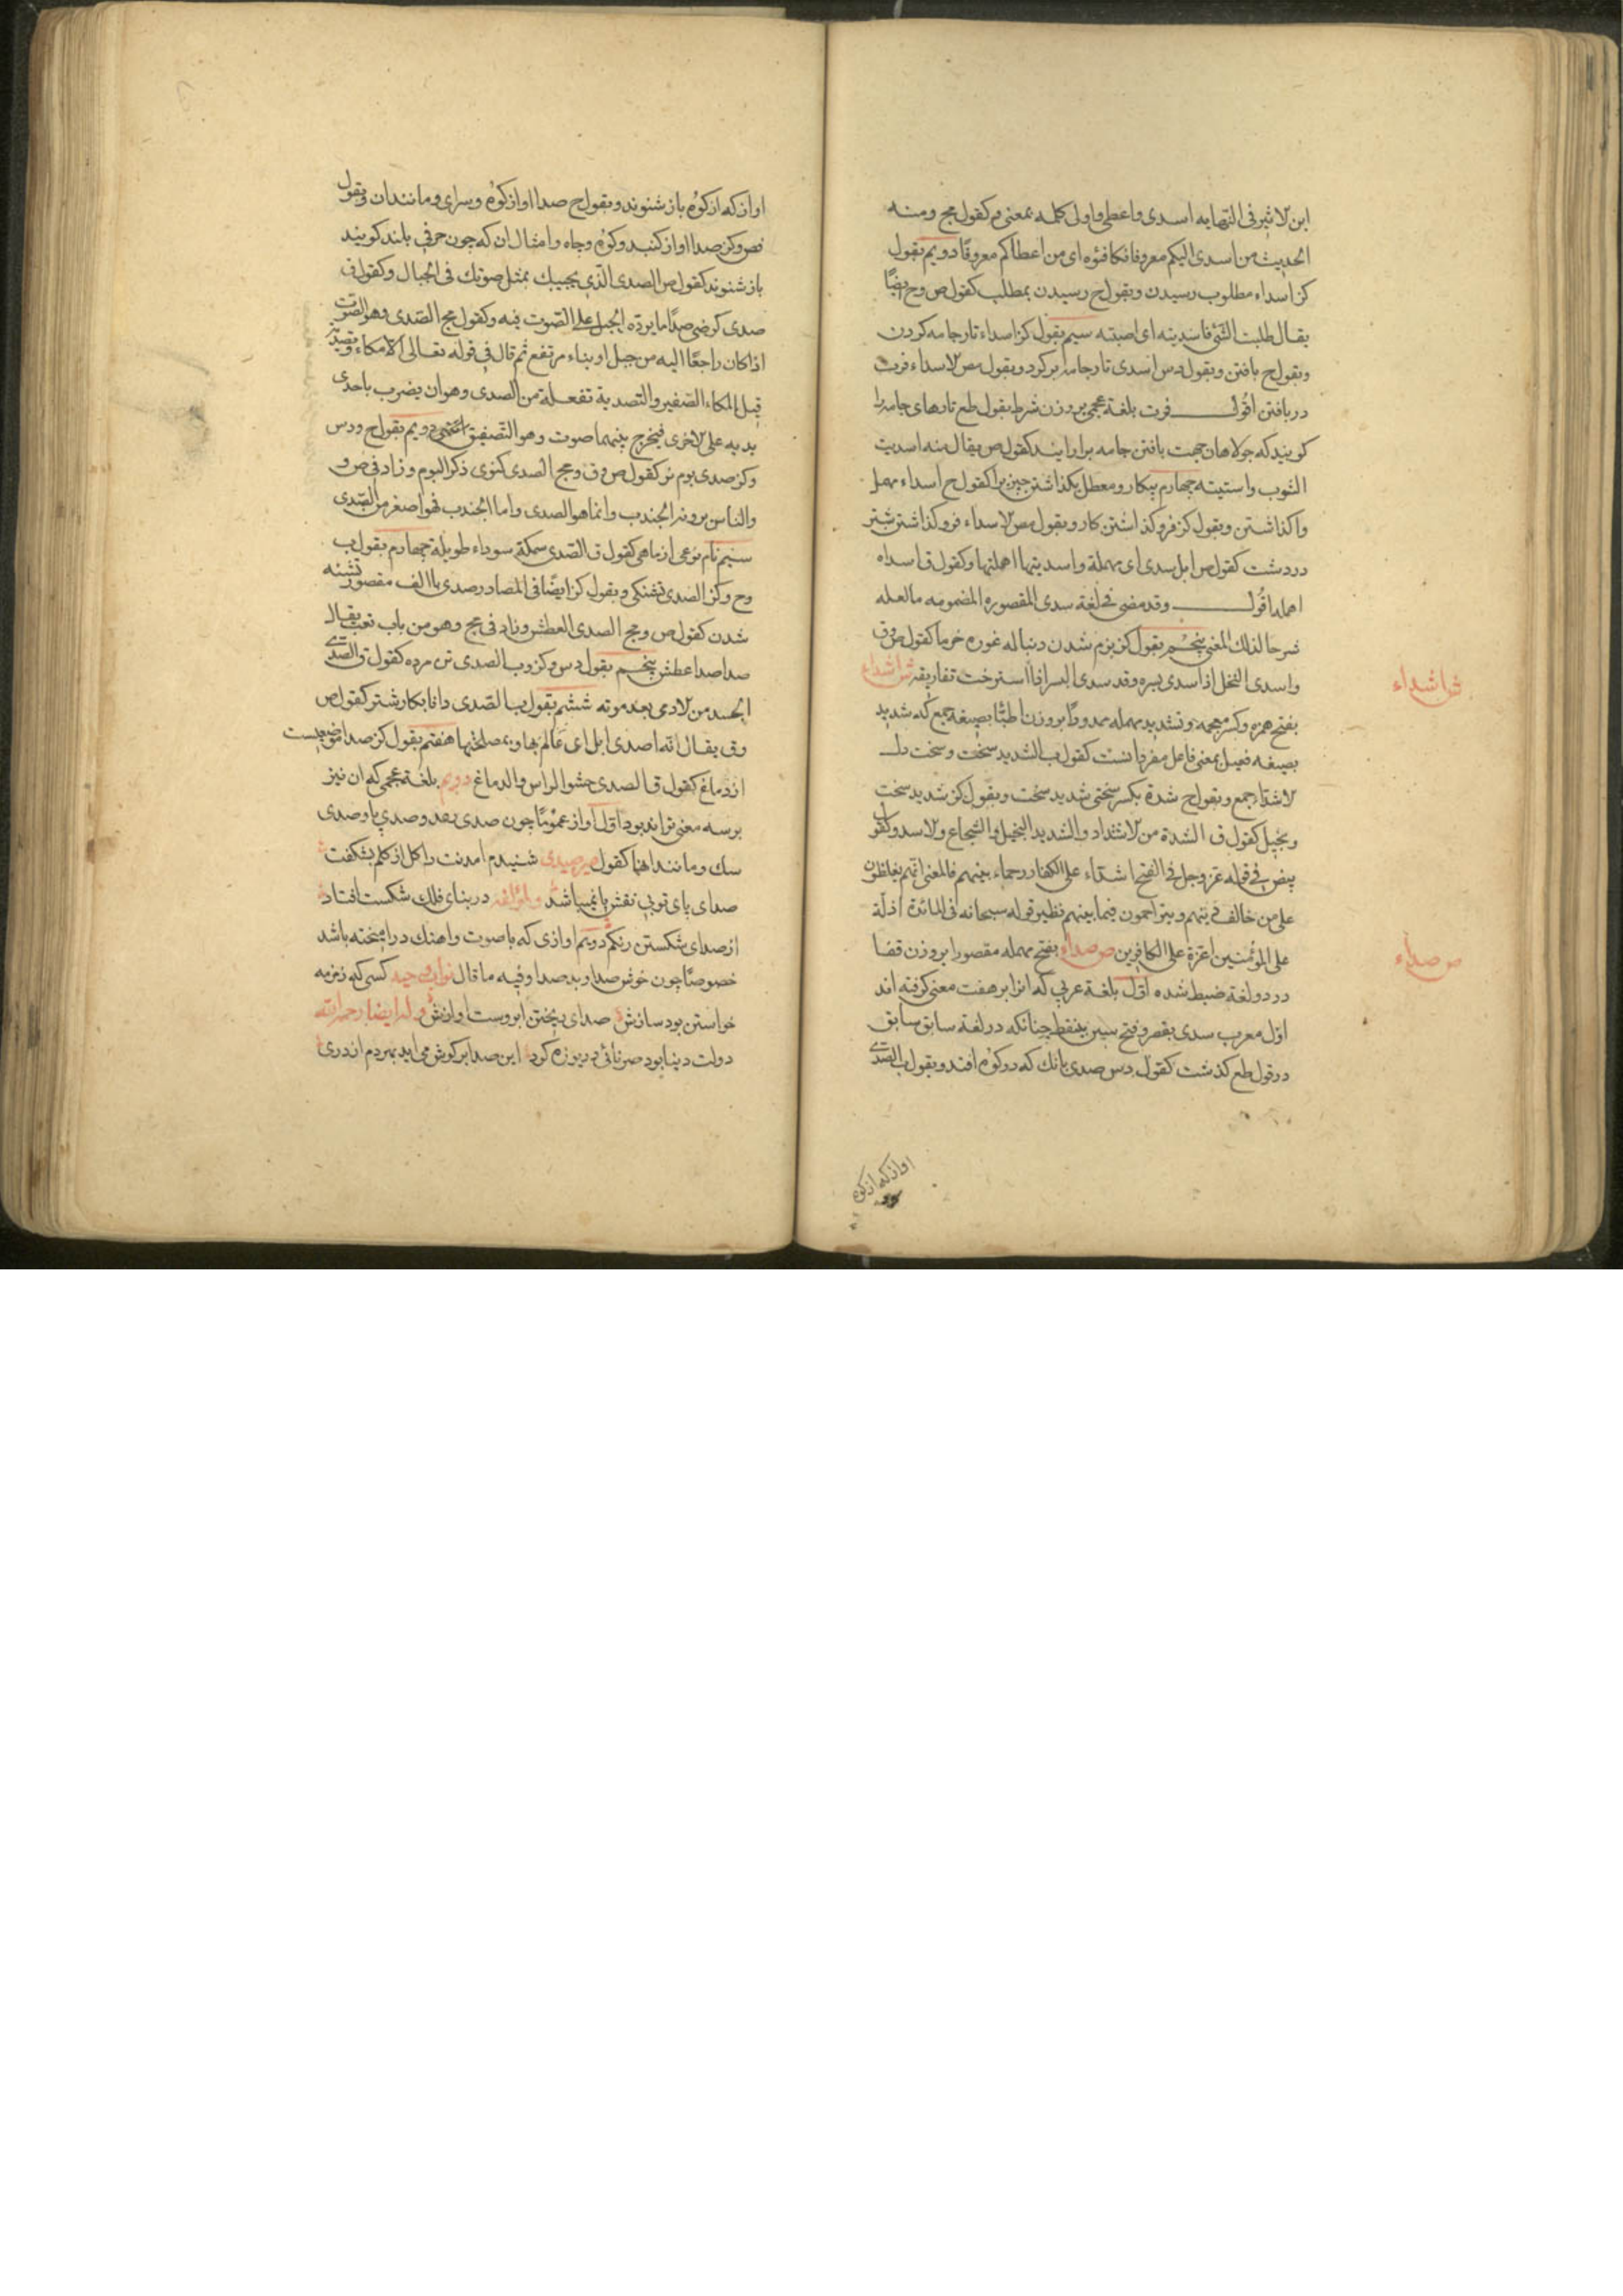 ابن لاثیر فی النهایه اسدی واعطی واولی کلمه بمعنی وم کقول مج ومنه
الحدیث من اسدی الیکم معروفا فکافئوه ای من اعطاکم معروفًا دویم بقول
کز اسداء مطلوب رسیدن وبقول ح رسیدن بمطلب کقول ص وح ایضًا
یقال طلبت الشئ فاسدیته ای اصبته سیم بقول کز اسداء تار جامه کردن
وبقول ح بافتن وبقول دس اسدی تار جامه بر کرد وبقول مص لاسداء فرت
در بافتن اقول فرت بلغة عجمی بر وزن شرط بقول طع تارهای جامه را
کویند که جولاهان جهت بافتن جامه برارایند کقول ص یقال منه اسدیت
الثوب واستیته چهارم بیکار ومعطل بکذاشتن چیز را کقول ح اسداء مهمل
واکذاشتن وبقول کز فرو کذاشتن کار وبقول مص لاسداء فرو کذاشتن شتر
در دشت کقول ص ابل سدی ای مهملة واسدیتها اهملتها وکقول ق اسداه
اهمله اقول وقد مضی فی لغة سدی المقصوره المضمومه مالعله
شرحا لذلک المعنی پنجم بقول کز نرم شدن دنباله غوره خرما کقول ص وق
واسدی النخل اذا اسدی بسره وقد سدی البسر اذا استرخت تفاریقه ش اشداء
ش اشداء
بفتح همزه وکسر معجمه وتشدید مهمله ممدودًا بر وزن اطبّا بصیغه جمع که شدید
بصیغه فعیل بمعنی فاعل مفرد انست کقول ب الشدید سخت وسخت دل
لاشدّاء جمع وبقول ح شدة بکسر سختی شدید سخت وبقول کز شدید سخت
وبخیل کقول ق الشدة من لاشتداد والشدید البخیل والشجاع ولاسد وکقول
بیض فی قوله عز وجل فی الفتح اشداء علی الکفار رحماء بینهم فالمعنی انهم یغلظون
علی من خالف دینهم ویتراحمون فیما بینهم نظیر قوله سبحانه فی المائدة اذلّة
علی المؤمنین اعزة علی الکافرین ص صداء بفتح مهمله مقصورا بر وزن قضا
ص صداء
در دو لغة ضبط شده اول بلغة عربی که انرا بر هفت معنی کرفته اند
اول معرب سدی بقصر وفتح سین بینقطه چنانکه در لغة سابق سابق
در قول طع کذشت کقول دس صدی بانک که در کوه افتد وبقول ب الصدی
اواز که از کوه
اواز که از کوه باز شنوند وبقول ح صدا اواز کوه وسرای ومانند ان وبقول
نص وکز صدا اواز کنبد وکوه وچاه وامثال ان که چون حرفی بلند کویند
باز شنوند کقول ص الصدی الذی یجیبک بمثل صوتک فی الجبال وکقول ق
صدی کرضی صدًا ما یردّه الجبل علی الصّوت فیه وکقول مج الصّدی وهو الصّوت
اذا کان راجعًا الیه من جبل او بناء مرتفع ثم قال فی قوله تعالی الا مکاء وتصدیة
قیل المکاء الصّفیر والتصدیة تفعلة من الصدی وهو ان یضرب باحدی
یدیه علی لاخری فیخرج بینهما صوت وهو التّصفیق انتهی دویم بقول ح ودس
وکز صدی بوم نر کقول ص وق ومج الصدی کنوی ذکر البوم وزاد فی ص و
والناس یرونه الجندب وانما هو الصدی واما الجندب فهو اصغر من الصّدی
سیم نام نوعی از ماهی کقول ق الصّدی سمکة سوداء طویلة چهارم بقول ب
وح وکز الصدی تشنکی وبقول کز ایضًا فی المصادر صدی باالف مقصور تشنه
شدن کقول ص ومج الصدی العطش وزاد فی مج وهو من باب تعب یقال
صدا صدا عطش پنجم بقول دس وکز وب الصدی تن مرده کقول ق والصّدی
الجسد من لادمی بعد موته ششم بقول ب الصّدی دانا بکار شتر کقول ص
وق یقال انه اصدی ابل ای عالم بها وبمصلحتها هفتم بقول کز صدا موضعیست
از دماغ کقول ق الصدی حشو الراس والدماغ دویم بلغة عجمی که ان نیز
بر سه معنی تواند بود اول اواز عمومًا چون صدی رعد وصدی پا وصدی
سک ومانند انها کقول میر صیدی شنیدم امدنت را کل از کلم بشکفت
صدای پای تو بی نقش پا نمیباشد ولمؤلفه در بنای فلک شکست افتاد
از صدای شکستن رنکم دویم اوازی که با صوت واهنک درامیخته باشد
خصوصًا چون خوش صدا وبد صدا وفیه ما قال کسی که زمزمه
خواستن بود سازش صدای ریختن ابروست اوازش وله ایضا رحمه الله
دولت دنیا بود صرنائی دریوزه کرد این صدا بر کوش می اید بمردم از دری